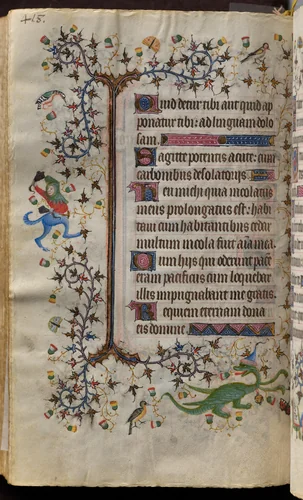 415.
Quid detur tibi aut quid ap
ponatur tibi: ad linguam dolo
sam.
Sagitte potentis acute: cum
carbonibus desolatoriis
Heu michi quia incolatus
meus prolongatus est: habi
taui cum habitantibus cedar
multum incola fuit aīa mea.
Cum hiis qui oderunt pacē
eram pacificus cum loquebar
illis impugnabant me gratis.
Requiem eternam dona
eis domine